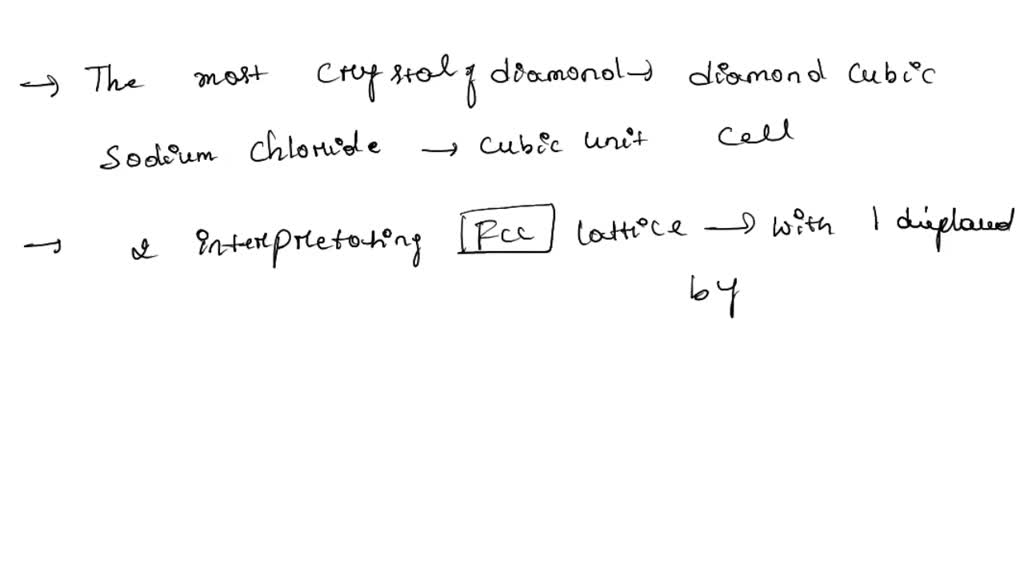 → The most crystal of diamond → diamond cubic
Sodium chloride → cubic unit cell
→ 2 interpretating Fcc lattice → with 1 displaced
by